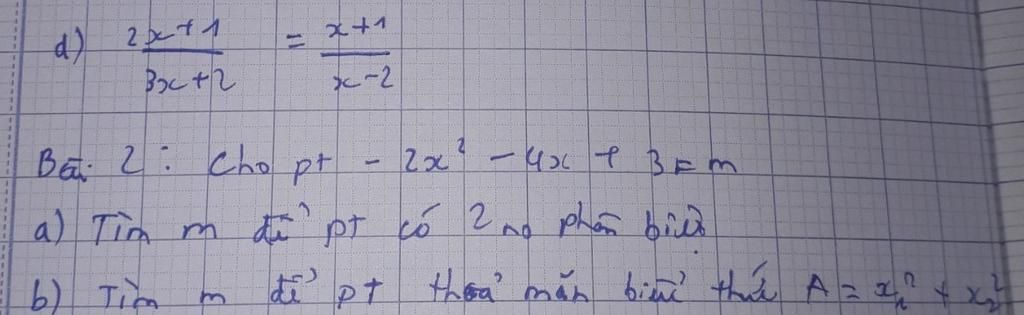 d) \frac{2x+1}{3x+2} = \frac{x+1}{x-2}
Bài 2: Cho pt - 2x² - 4x + 3 = m
a) Tìm m để pt có 2 no phân biệt
b) Tìm m để pt thoả mãn biểu thức A = x₁² + x₂²